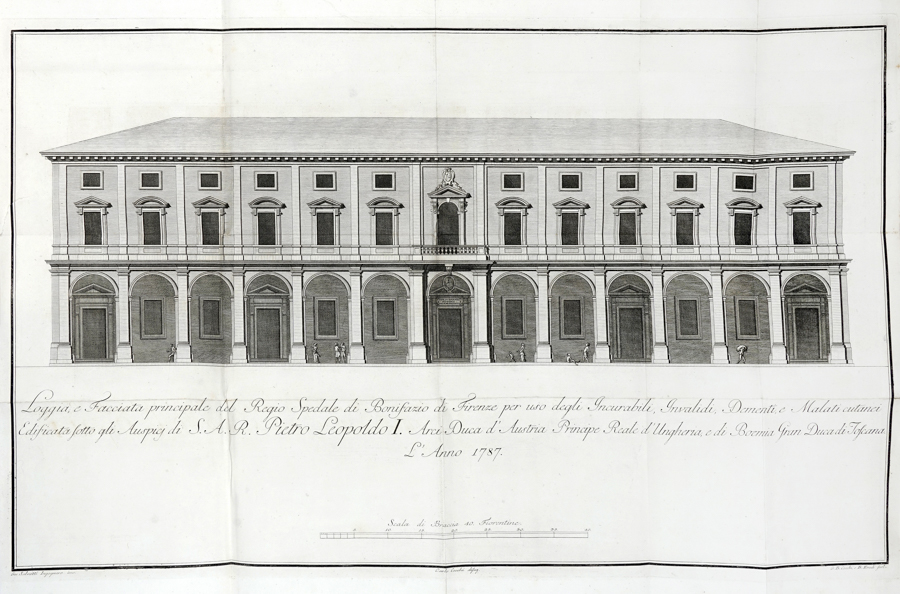 Loggia, e Facciata principale del Regio Spedale di Bonifazio di Firenze per uso degli Incurabili, Invalidi, Dementi, e Malati cutanei
Edificata sotto gli Auspicj di S. A. R. Pietro Leopoldo I. Arci Duca d'Austria Principe Reale d'Ungheria, e di Boemia Gran Duca di Toscana
L'Anno 1787.
Scala di Braccia 40 Fiorentine.